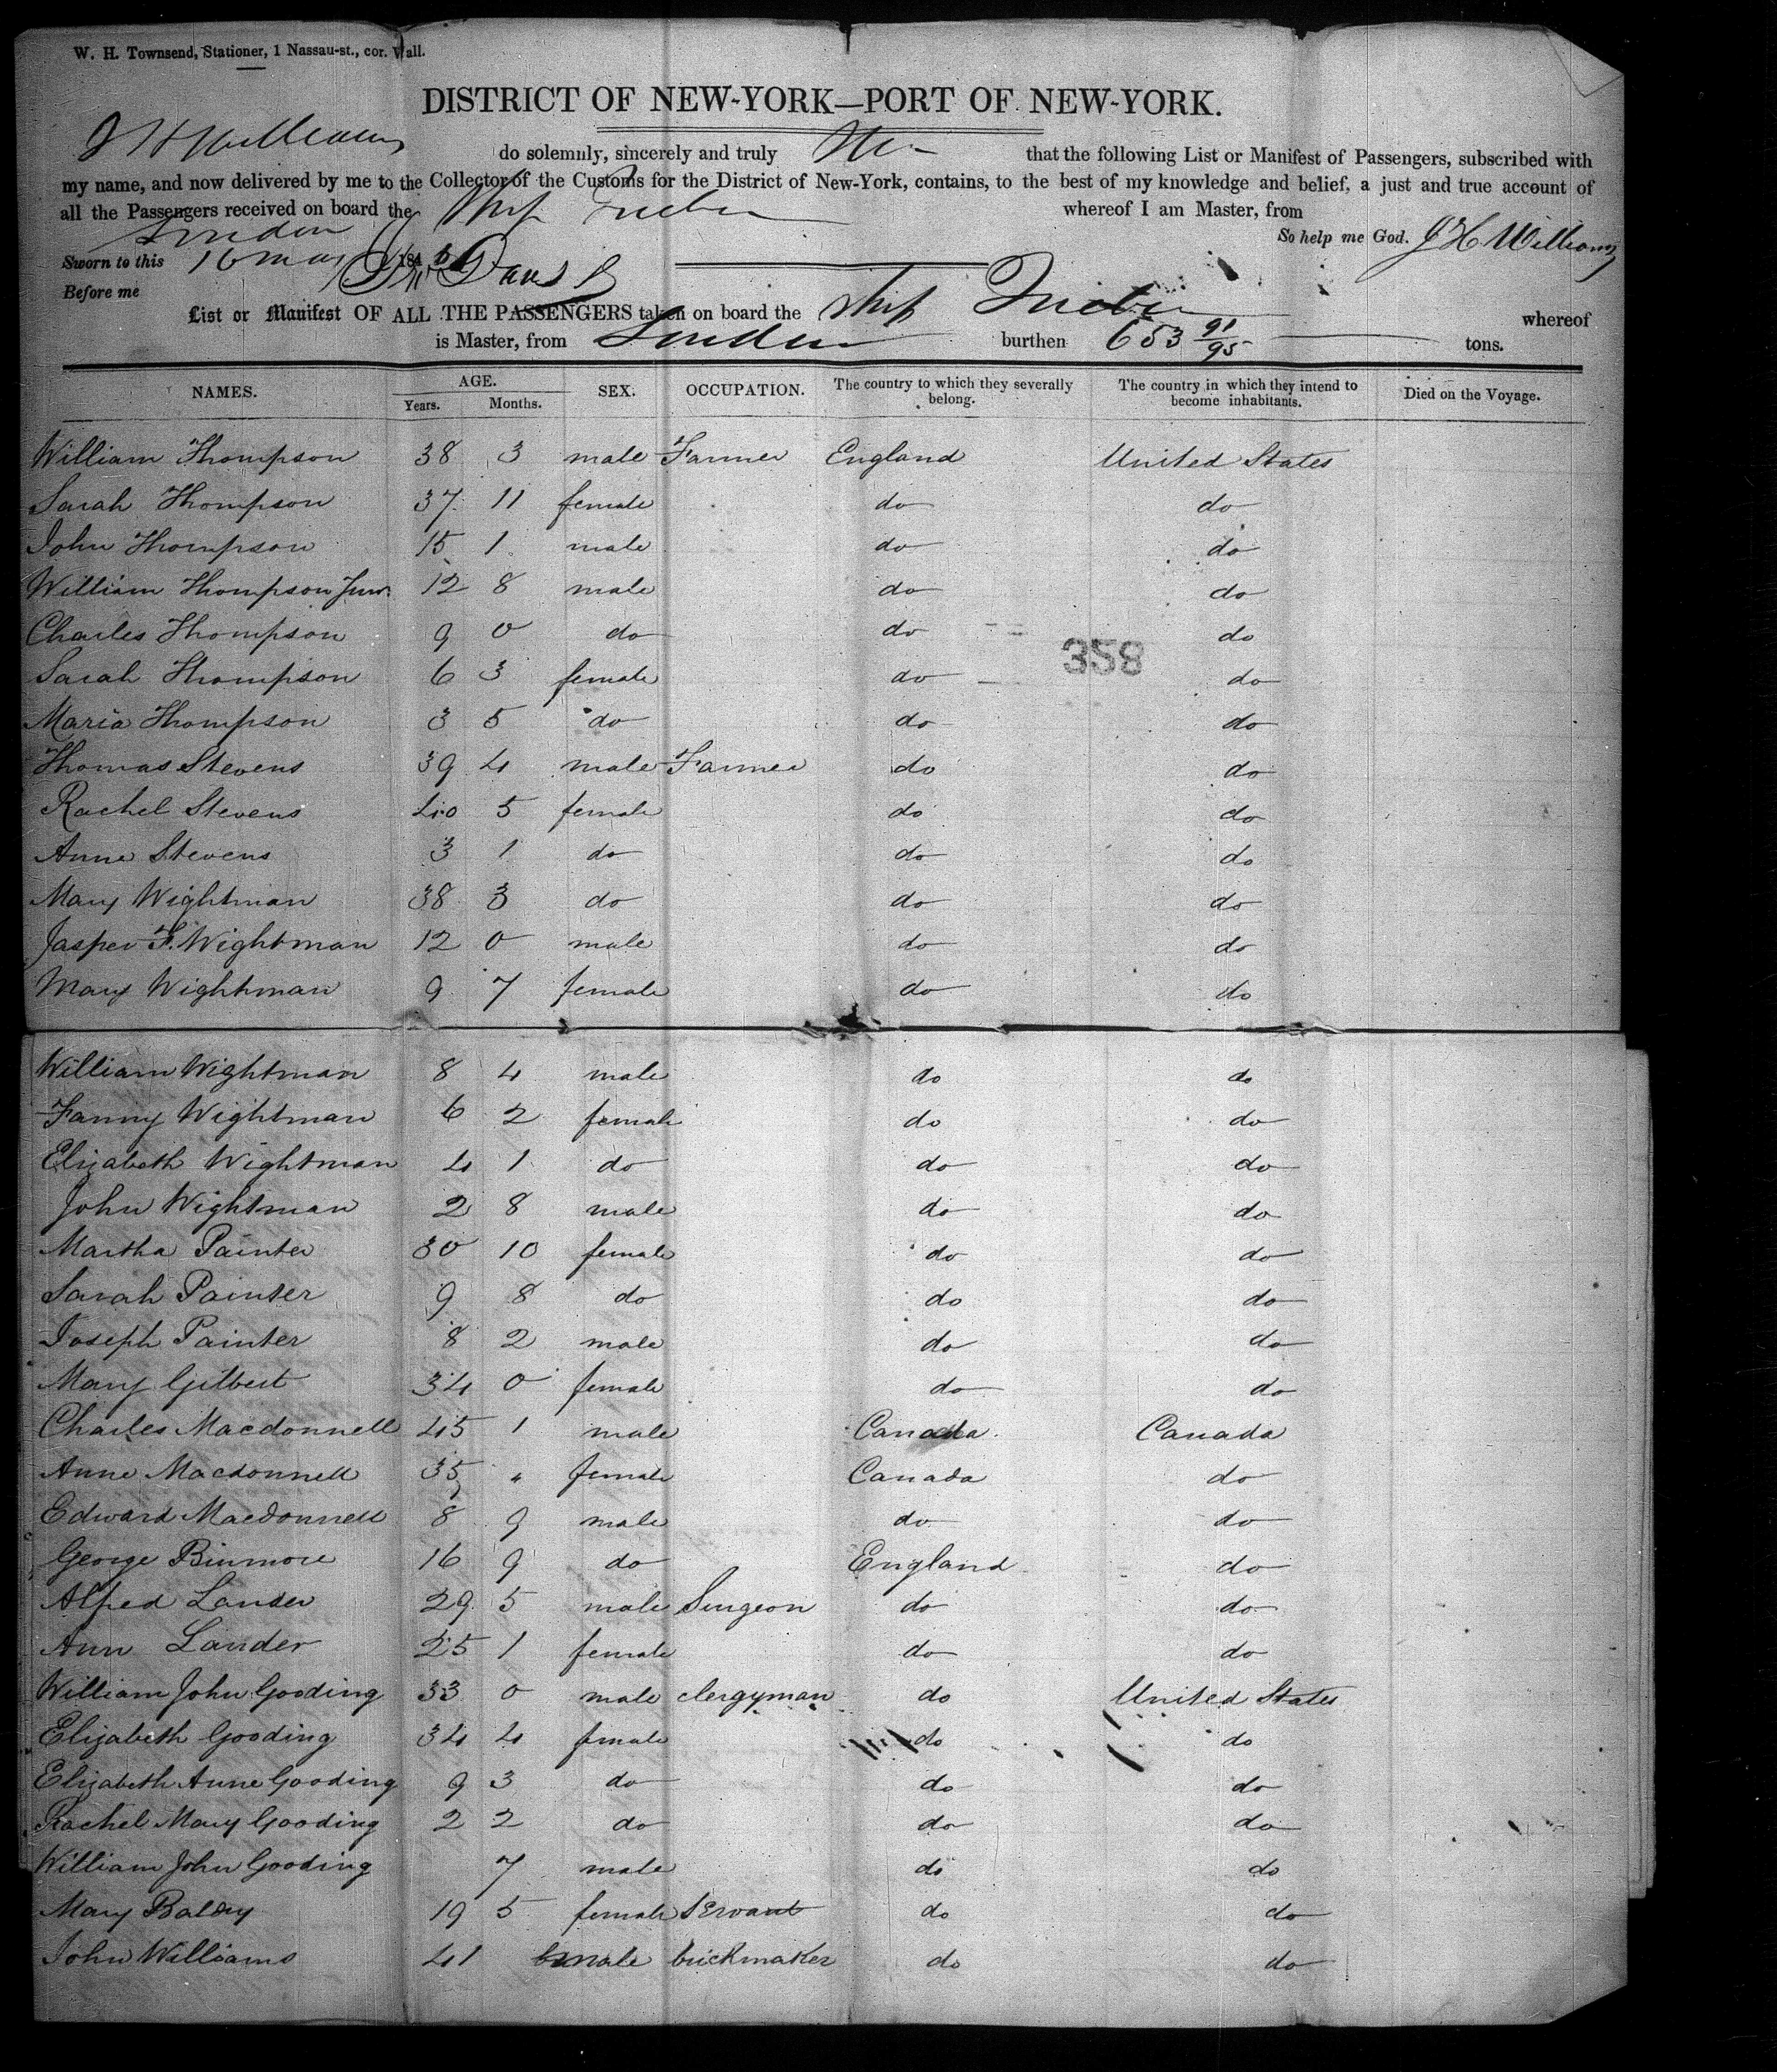 W. H. Townsend, Stationer, 1 Nassau-st., cor. Wall.
DISTRICT OF NEW-YORK—PORT OF NEW-YORK.
J H Williams do solemnly, sincerely and truly that the following List or Manifest of Passengers, subscribed with
my name, and now delivered by me to the Collector of the Customs for the District of New-York, contains, to the best of my knowledge and belief, a just and true account of
all the Passengers received on board the Ship whereof I am Master, from
London So help me God. J H Williams
Sworn to this 16 184
Before me
List or Manifest OF ALL THE PASSENGERS taken on board the Ship whereof
is Master, from London burthen 653 91/95 tons.
NAMES. AGE. Years. Months. SEX. OCCUPATION. The country to which they severally belong. The country in which they intend to become inhabitants. Died on the Voyage.
William Thompson 38 3 male Farmer England United States
Sarah Thompson 37 11 female do do
John Thompson 15 1 male do do
William Thompson Junr. 12 8 male do do
Charles Thompson 9 0 do do do
358
Sarah Thompson 6 3 female do do
Maria Thompson 3 5 do do do
Thomas Stevens 39 4 male Farmer do do
Rachel Stevens 40 5 female do do
Anne Stevens 3 1 do do do
Mary Wightman 38 3 do do do
Jasper F. Wightman 12 0 male do do
Mary Wightman 9 7 female do do
William Wightman 8 4 male do do
Fanny Wightman 6 2 female do do
Elizabeth Wightman 4 1 do do do
John Wightman 2 8 male do do
Martha Painter 30 10 female do do
Sarah Painter 9 8 do do do
Joseph Painter 8 2 male do do
Mary Gilbert 34 0 female do do
Charles Macdonnell 45 1 male Canada. Canada
Anne Macdonnell 35 " female Canada do
Edward Macdonnell 8 9 male do do
George Binmore 16 9 do England do
Alfred Lander 29 5 male Surgeon do do
Ann Lander 25 1 female do do
William John Gooding 33 0 male clergyman do United States
Elizabeth Gooding 34 4 female do do
Elizabeth Anne Gooding 9 3 do do do
Rachel Mary Gooding 2 2 do do do
William John Gooding 7 male do do
Mary Baldry 19 5 female servant do do
John Williams 41 male brickmaker do do